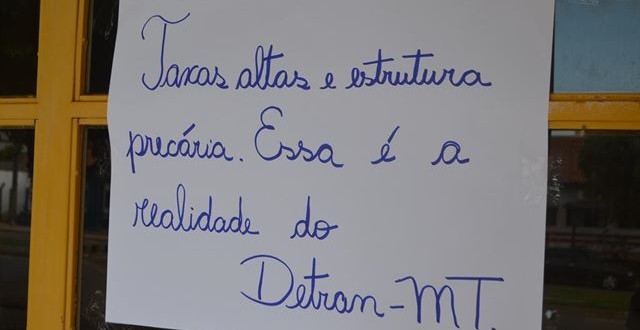 Taxas altas e estrutura
precária. Essa é a
realidade do
Detran-MT.